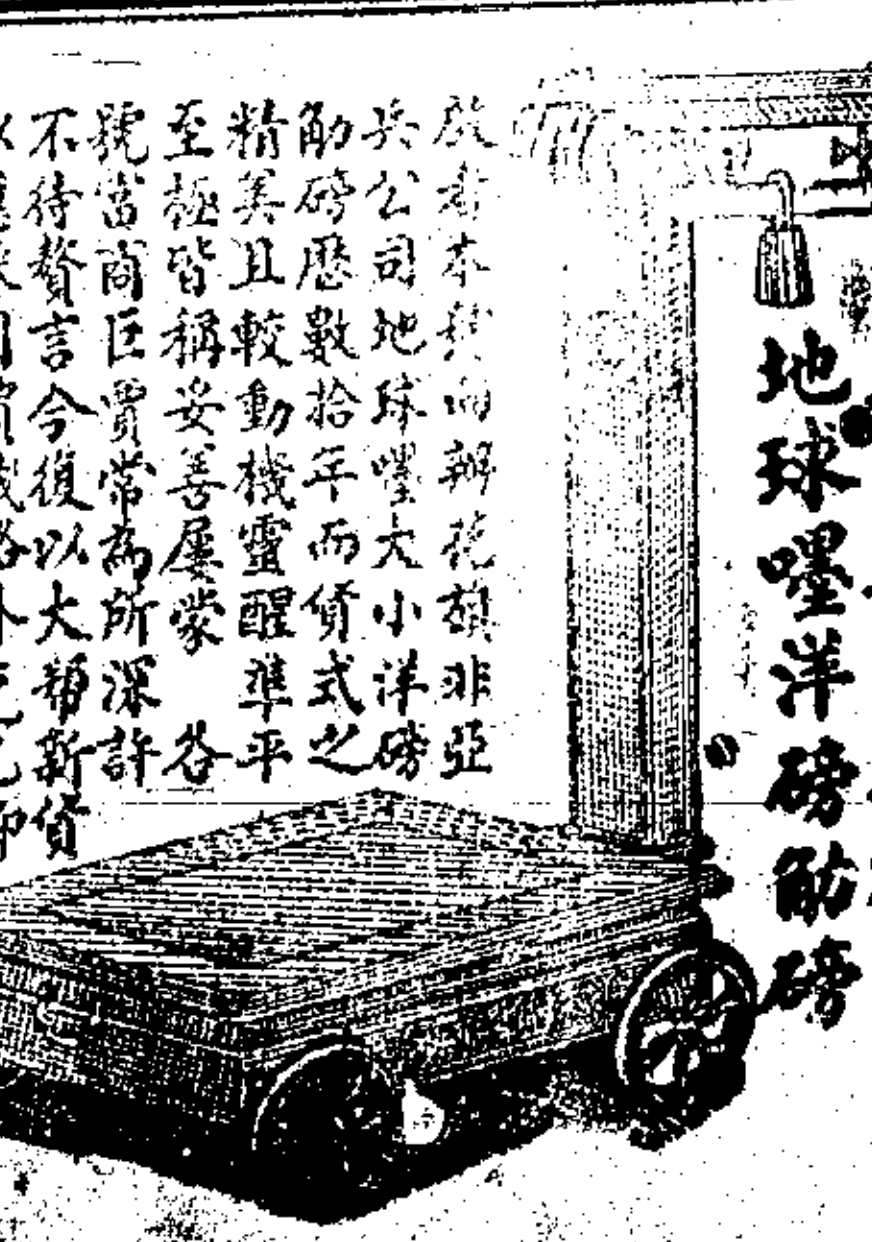 地球嘜洋磅觔磅
啟者本號向辦花旗非亞
兵公司地球嘜大小洋磅
觔磅歷數拾年而貨式之
精美且較動機靈醒準平
至極皆稱妥善屢蒙 各
號當商巨賈常為所深許
不待贅言今復以大幫新貨